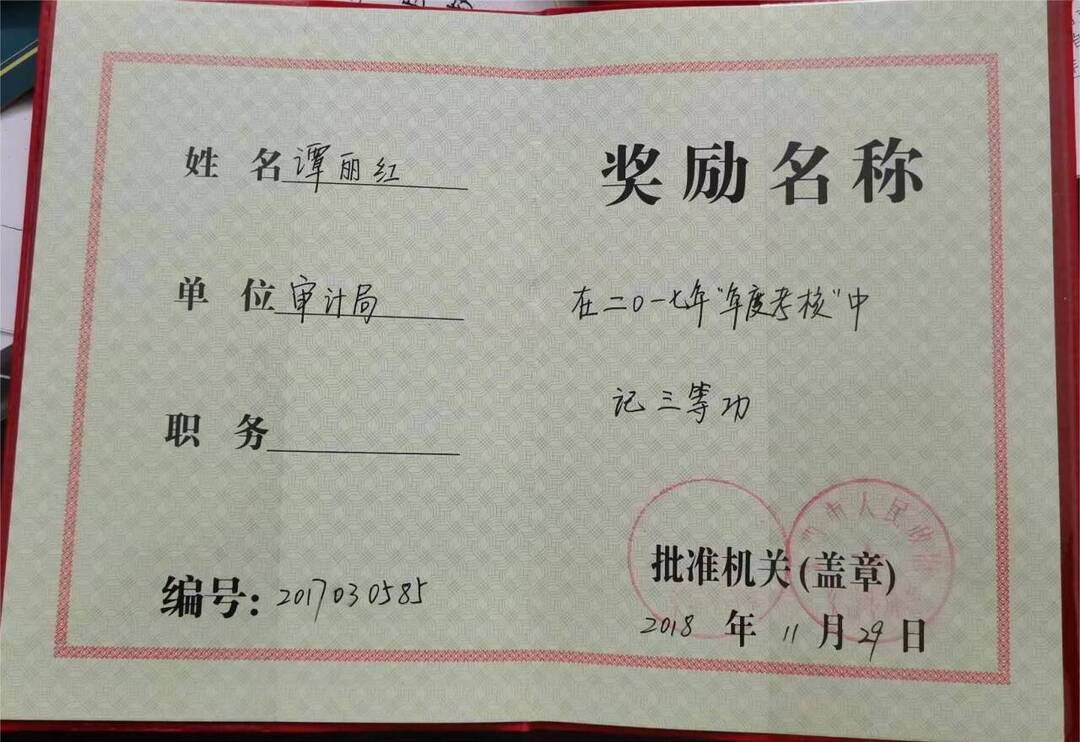 姓名谭丽红
单位审计局
职务
编号:2017030585
奖励名称
在二〇一七年"年度考核"中
记三等功
市人民政府
批准机关(盖章)
2018年11月29日